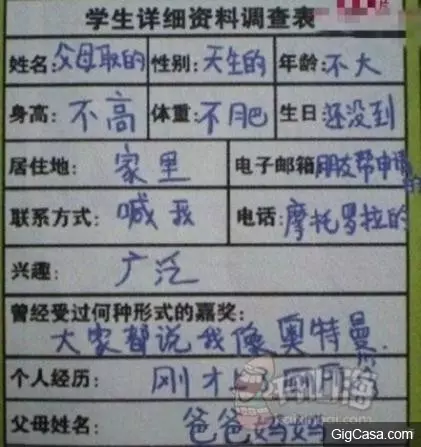 学生详细资料调查表
姓名:父母取的 性别:天生的 年龄:不大
身高:不高 体重:不肥 生日:还没到
居住地:家里 电子邮箱:朋友帮申请的
联系方式:喊我 电话:摩托罗拉的
兴趣:广泛
曾经受过何种形式的嘉奖:
大家都说我像奥特曼.
个人经历:刚才
父母姓名:爸爸妈妈
GigCasa.com